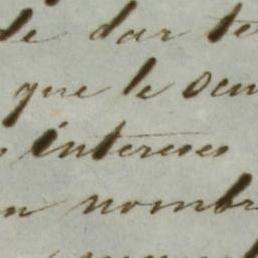 de dar te
que le ocu
intereses
n nombr